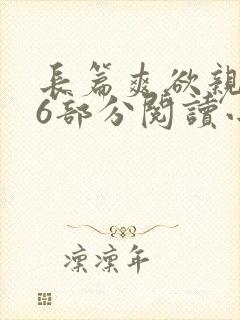 長篇爽欲親
6部分閱讀
凛凛年